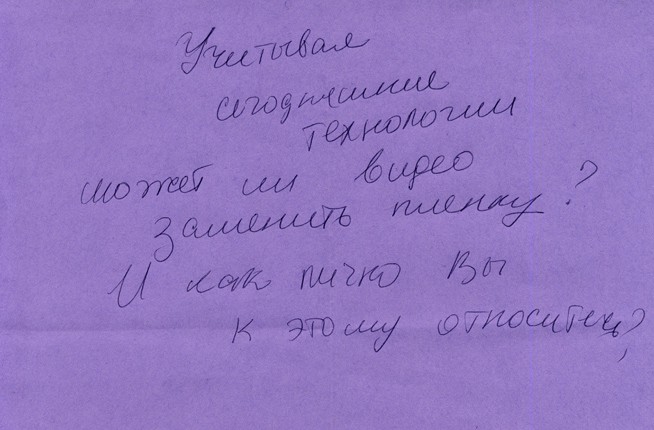 Учитывая
сегодняшние
технологии
может ли видео
заменить пленку?
И как лично Вы
к этому относитесь?